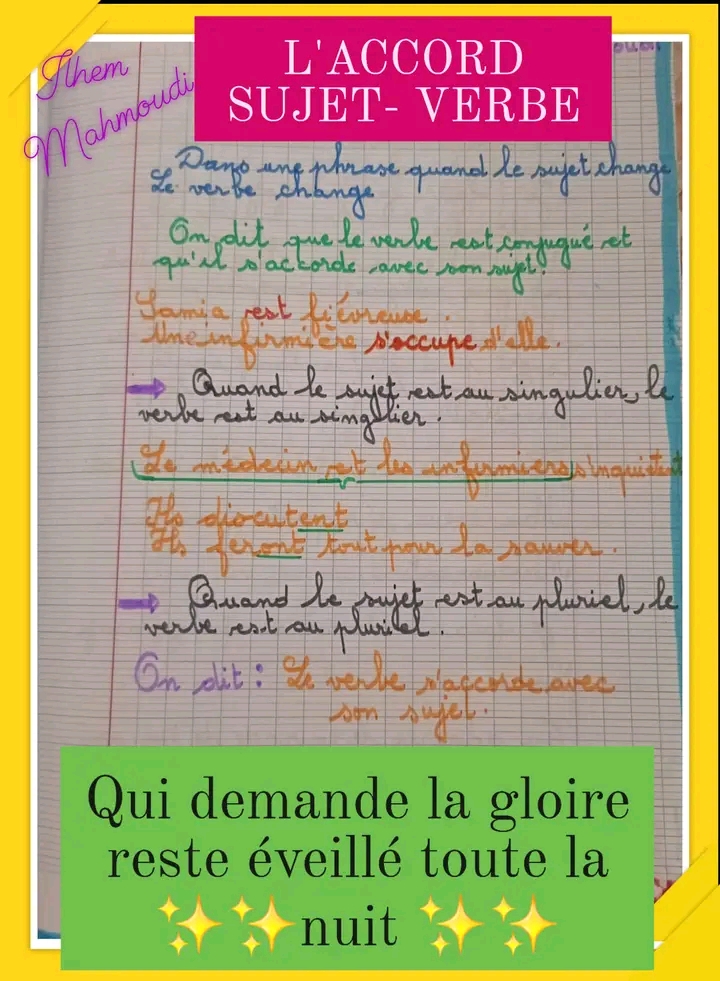 Ilhem
Mahmoudi
L'ACCORD
SUJET- VERBE
Dans une phrase quand le sujet change
Le verbe change
On dit que le verbe est conjugué et
qu'il s'accorde avec son sujet.
Samia est fiévreuse.
Une infirmière s'occupe d'elle.
Quand le sujet est au singulier, le
verbe est au singulier.
Le médecin et les infirmiers s'inquiètent
Ils discutent
Ils feront tout pour la sauver.
Quand le sujet est au pluriel, le
verbe est au pluriel.
On dit : Le verbe s'accorde avec
son sujet.
Qui demande la gloire
reste éveillé toute la
✨✨nuit ✨✨